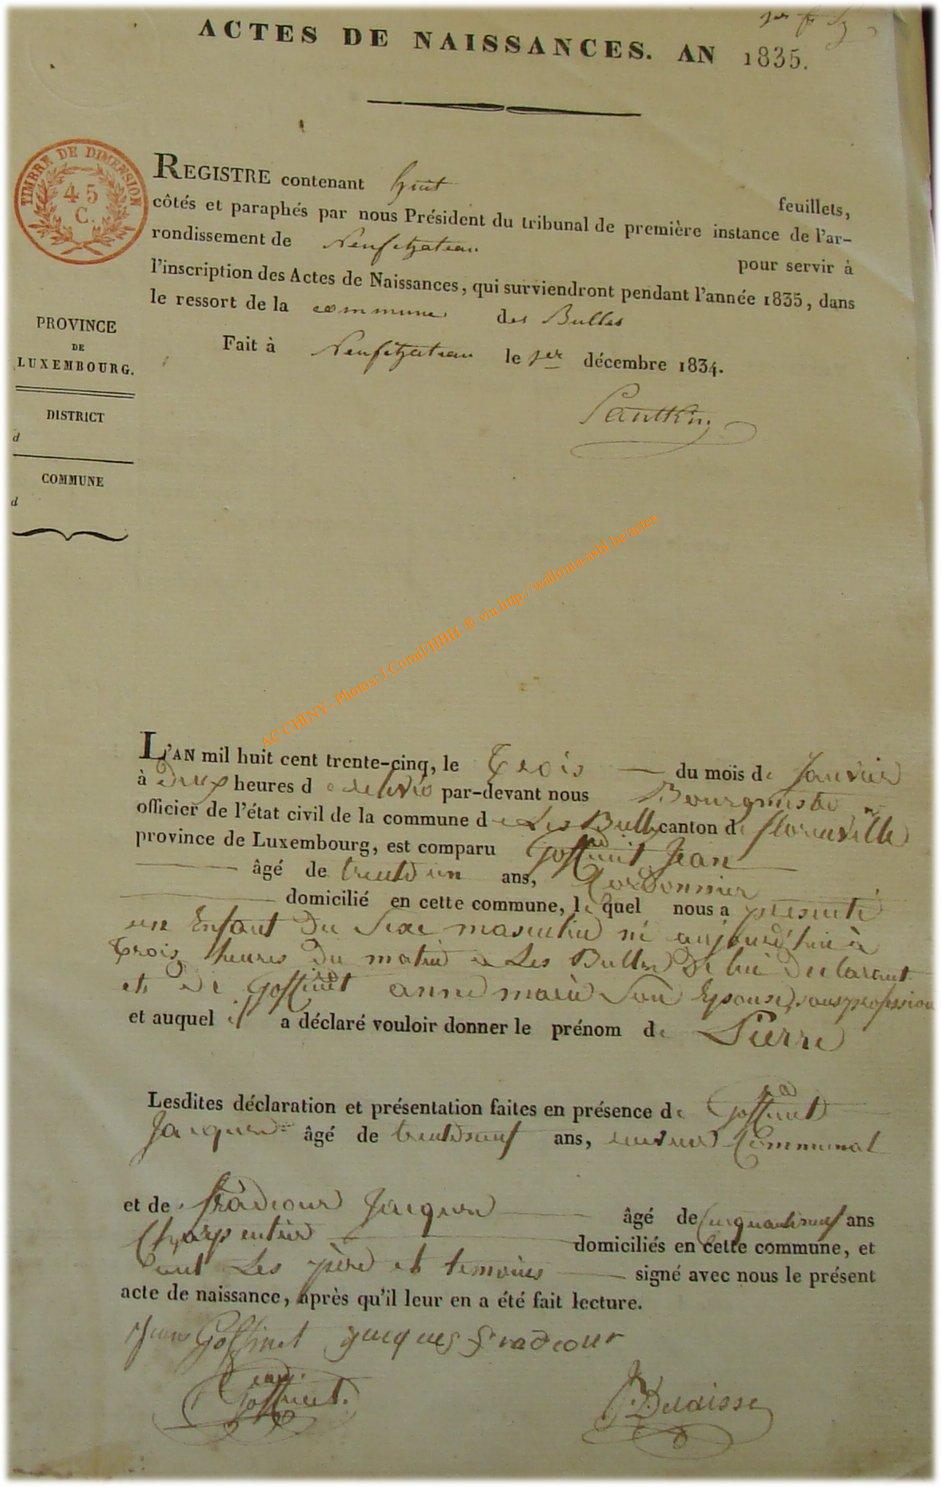 ACTES DE NAISSANCES. AN 1835.
TIMBRE DE DIMENSION
45
C.
REGISTRE contenant huit feuillets,
côtés et paraphés par nous Président du tribunal de première instance de l'ar-
rondissement de Neufchateau pour servir à
l'inscription des Actes de Naissances, qui surviendront pendant l'année 1835, dans
le ressort de la commune des Bulles
Fait à Neufchateau le 1er décembre 1834.
PROVINCE
DE
LUXEMBOURG.
DISTRICT
d
COMMUNE
d
AC CHINY - Photos: J.Conal/HBH ® via http://wallonia-asbl.be/actes
L'AN mil huit cent trente-cinq, le Trois du mois de Janvier
à Deux heures de relevée par-devant nous Bourgmestre
officier de l'état civil de la commune de Les Bulles canton de florenville
province de Luxembourg, est comparu Goffinet Jean
âgé de trente un ans, Cordonnier
domicilié en cette commune, lequel nous a présenté
un Enfant Du Sexe masculin né aujourd'hui à
Trois heures Du matin a Les Bulles De lui Declarant
et de Goffinet anne marie Son Epouse, sans profession
et auquel il a déclaré vouloir donner le prénom de Pierre
Lesdites déclaration et présentation faites en présence de Goffinet
Jacques âgé de trente neuf ans, Communal
et de fradcour Jacques âgé de Cinquante neuf ans
Charpentier domiciliés en cette commune, et
ont Les père et temoins signé avec nous le présent
acte de naissance, après qu'il leur en a été fait lecture.
Jean Goffinet jacques fradcour
Goffinet. Delaisse